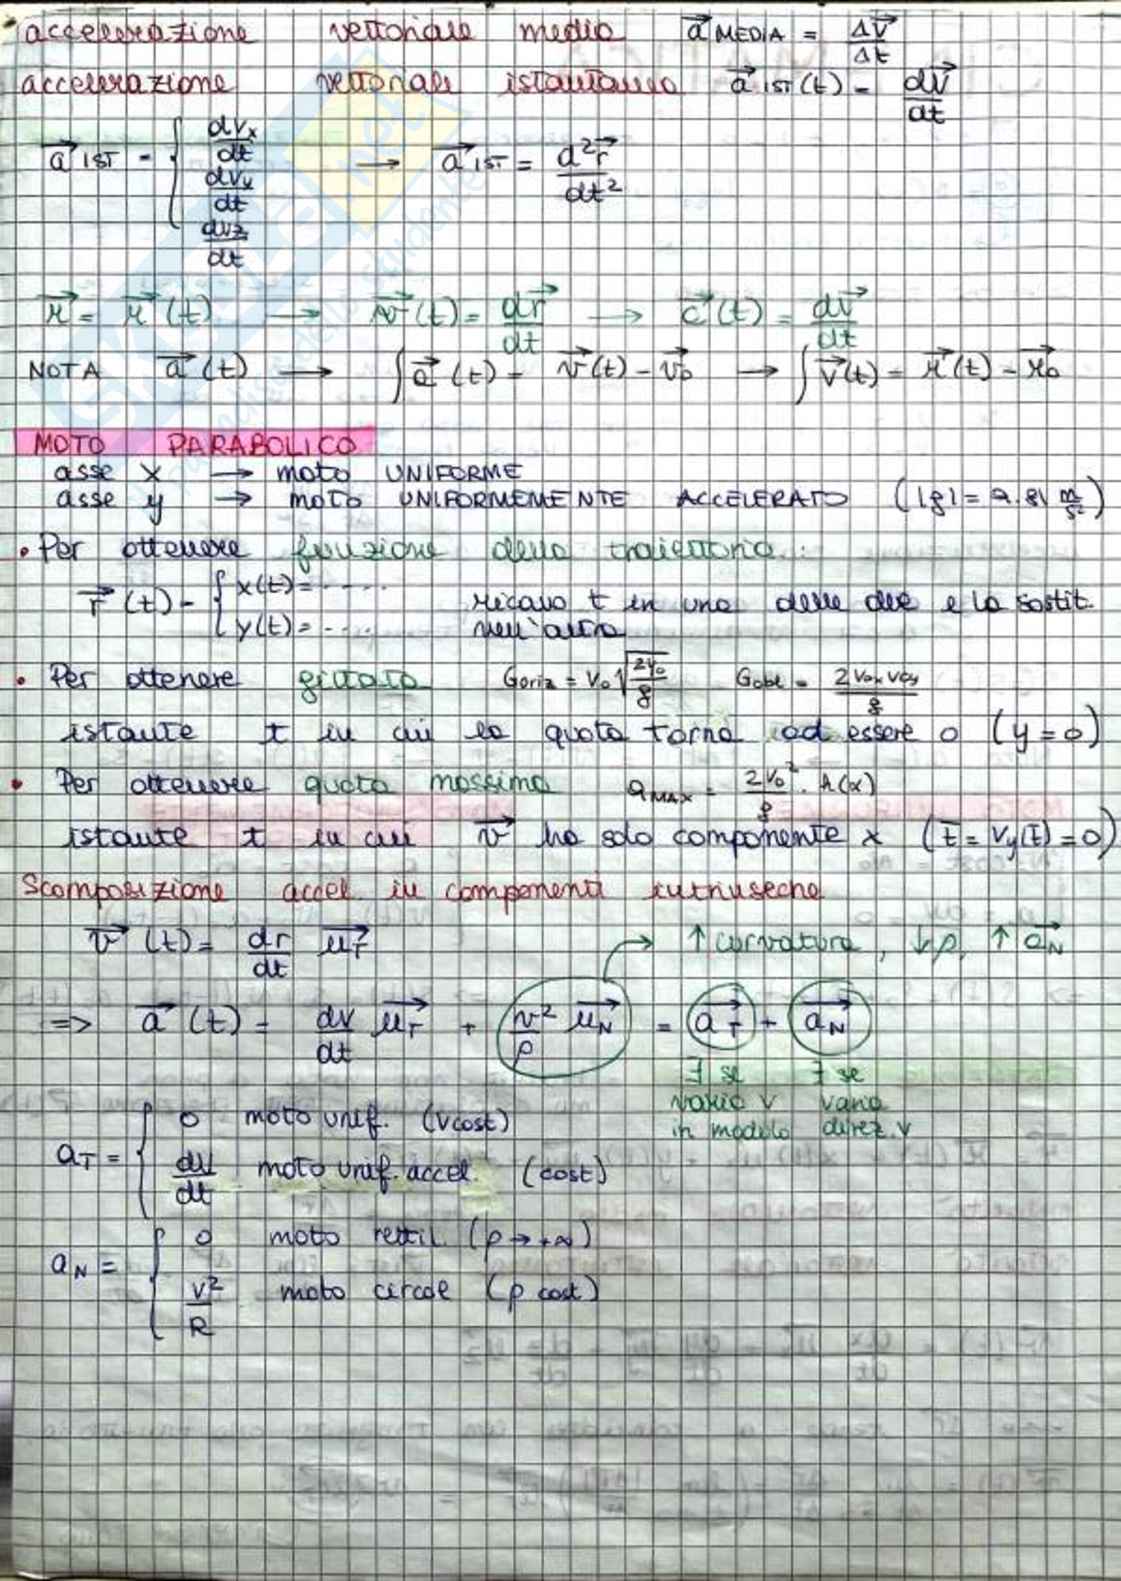 accelerazione vettoriale media a⃗ MEDIA = Δv⃗/Δt
accelerazione vettoriale istantanea a⃗ IST(t) = dv⃗/dt
a⃗ IST = { dvx/dt dvy/dt dvz/dt → a⃗ IST = d²r⃗/dt²
r⃗ = r⃗(t) → v⃗(t) = dr⃗/dt → (t) = dv⃗/dt
NOTA a⃗(t) → ∫a⃗(t) = v⃗(t) - v⃗0 → ∫v⃗(t) = r⃗(t) - r⃗0
MOTO PARABOLICO
asse x → moto UNIFORME
asse y → moto UNIFORMEMENTE ACCELERATO (|g| = 9.81 m/s²)
• Per ottenere funzione della traiettoria:
r⃗(t) = { x(t) = ..... y(t) = ..... ricavo t in una delle due e la sostit.
nell'altra
• Per ottenere gittata Goriz = v0 √(2y0/g) Gobl = 2v0x v0y/g
istante t in cui la quota torna ad essere 0 (y=0)
• Per ottenere quota massima MAX = 2v0²/g · h(x)
istante t in cui v⃗ ha solo componente x (t̄ = Vy(t̄) = 0)
Scomposizione accel. in componenti intrinseche
v⃗(t) = dr/dt u⃗T → ↑ curvatura, ↓ρ, ↑ a⃗N
=> a⃗(t) = dv/dt u⃗T + v²/ρ u⃗N = a⃗T + a⃗N
∃ se ∃ se
varia v varia
in modulo direz. v
aT = { 0 moto unif. (v cost)
dv/dt moto unif. accel. (cost)
aN = { 0 moto rettil. (ρ → +∞)
v²/R moto circol (ρ cost)